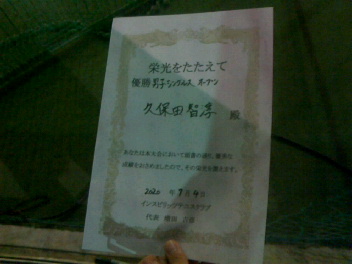 栄光をたたえて
優勝 男子シングルス オープン
久保田智淳 殿
あなたは本大会において頭書の通り、優秀な
成績をおさめましたので、その栄光を讃えます。
2020 年 月 日
インスピリッツテニスクラブ
代表